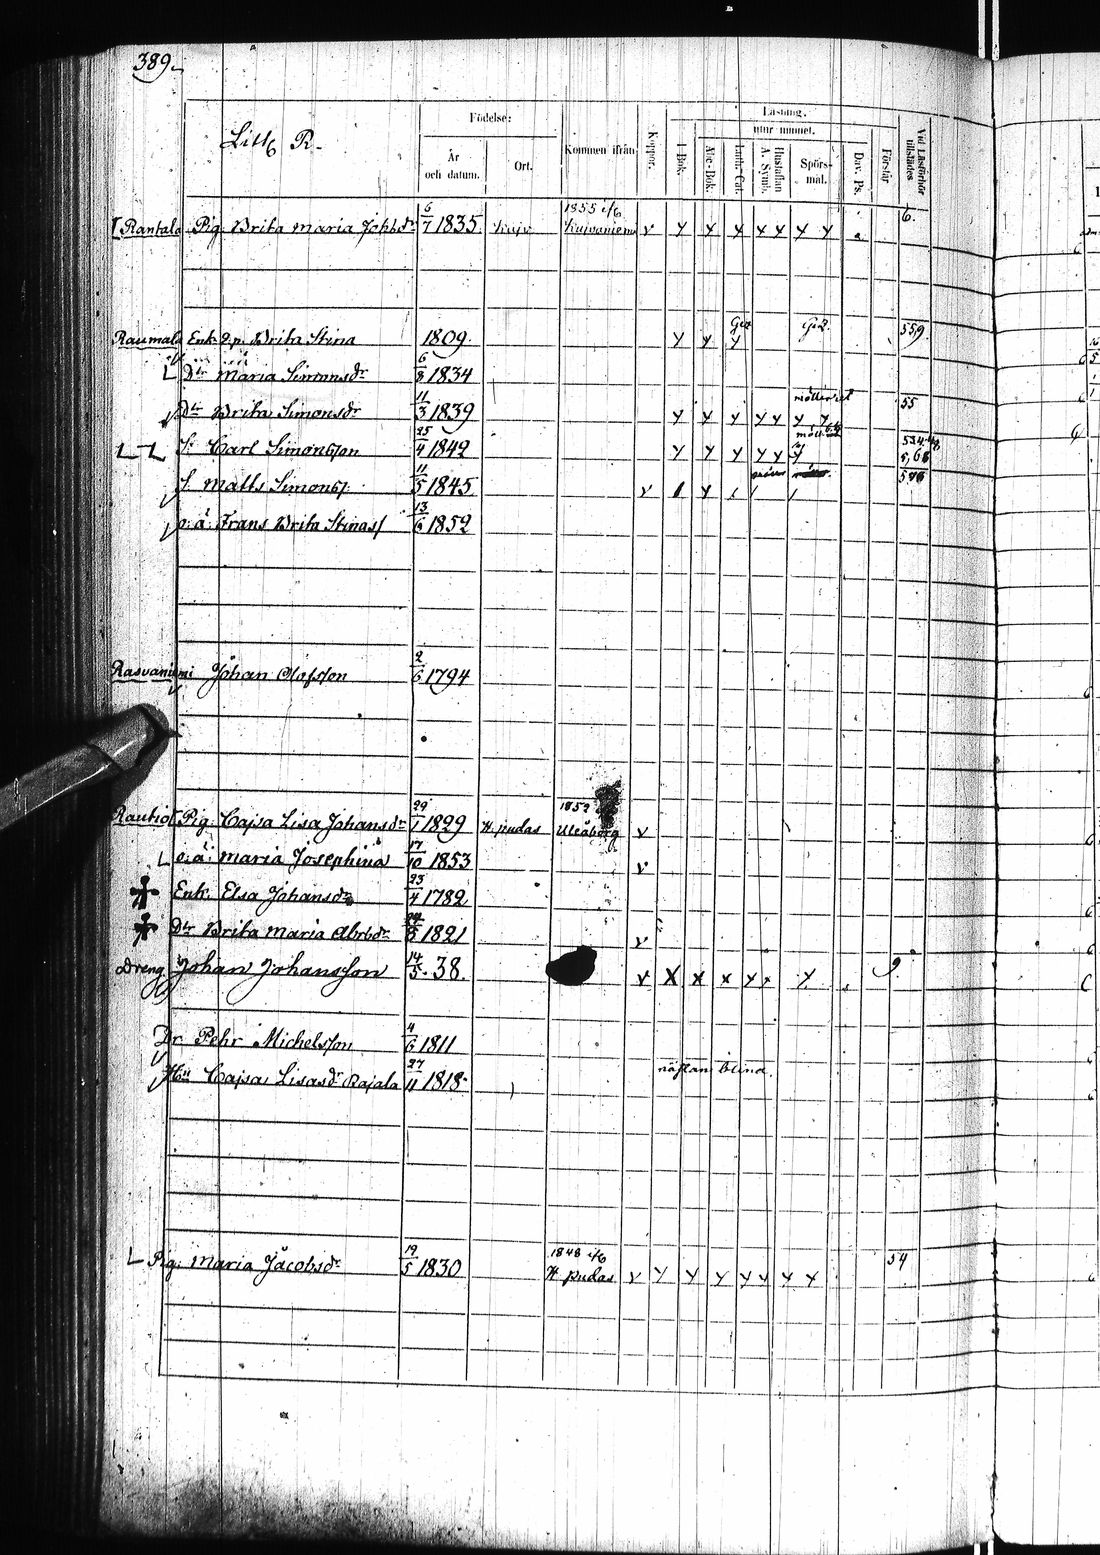 389.
Litt R.
Födelse:
År och datum.
Ort.
Kommen ifrån
Koppor.
Läsning.
utur minnet.
I Bok.
Abc-Bok.
Luth. Cat.
Hustaflan A. Symb.
Spörs-mål.
Dav. Ps.
Förstår
Vid Läsförhör tillstädes
Rantala Pig. Brita Maria 6/7 1835 1855 v y y y y y y 6.
Raumala Enk. Brita Stina 1809 y y y 559
Dtr Maria Simonsdr 6/8 1834
Dtr Brita Simonsdr 11/3 1839 y y y y y y y 55
S. Carl Simonsson 25/4 1842 y y y y y y
S. Matts Simonss. 11/5 1845 v
o.ä. Frans Brita Stinas 13/6 1852
Rasvaniemi Johan Olofsson 2/6 1794
Rautio Pig. Cajsa Lisa Johansdr 29/1 1829 H. pudas 1852 Uleåborg v
o.ä. Maria Josephina 17/10 1853 v
Enk. Elsa Johansdr 23/4 1782
Dtr Brita Maria Abr:sdr 24/5 1821 v
Dreng Johan Johansson 14/5 38. v x x x y x y 9
Dr Pehr Michelsson 4/6 1811
Hu Cajsa Lisasdr Rajala 27/11 1818 nästan blind.
Pig. Maria Jacobsdr 19/5 1830 1848 H pudas v y y y y y y y 54